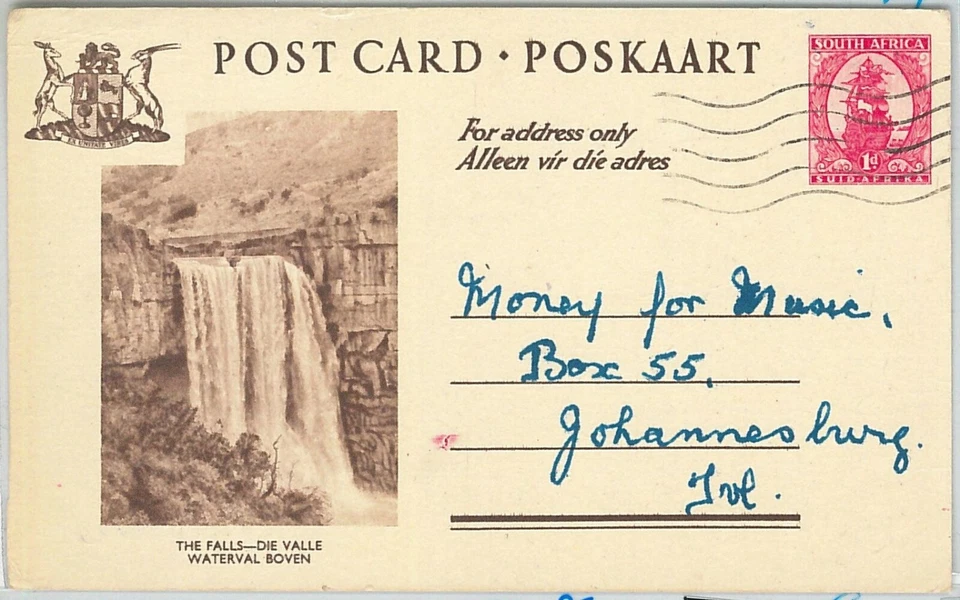 POST CARD · POSKAART
SOUTH AFRICA
1d
SUID-AFRIKA
EX UNITATE VIRES
For address only
Alleen vir die adres
Money for Music,
Box 55,
Johannesburg.
Tvl.
THE FALLS—DIE VALLE
WATERVAL BOVEN